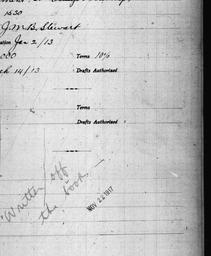 1530
J.M.B. Stewart
ation Jan 2/13
000 Terms 10%
ch 14/13 Drafts Authorised
Terms
Drafts Authorised
Written off
the book
NOV 22 1917